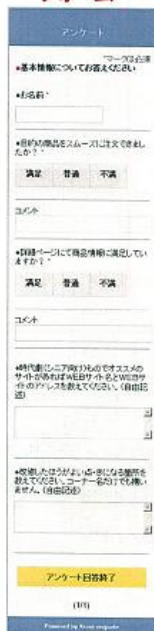 アンケート
*マークは必須
●基本情報についてお答えください
●お名前*
●目的の商品をスムーズに注文できまし
たか?*
満足 普通 不満
コメント
●詳細ページにて商品情報に満足してい
ますか?*
満足 普通 不満
コメント
●時代劇(シニア向け)ものでオススメの
サイトがあればWEBサイト名とWEBサ
イトのアドレスを教えてください。(自由記
述)
●改修したほうがよい点・気になる箇所を
教えてください。コーナー名だけでも構い
ません。(自由記述)
アンケート回答終了
(1/1)